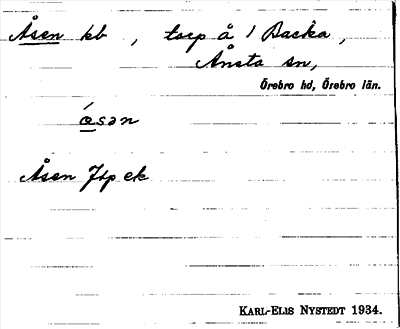 Åsen kb , torp å 1 Backa ,
Ånsta sn,
Örebro hd, Örebro län.
ǻsən
Åsen Jfp ek
KARL-ELIS NYSTEDT 1934.